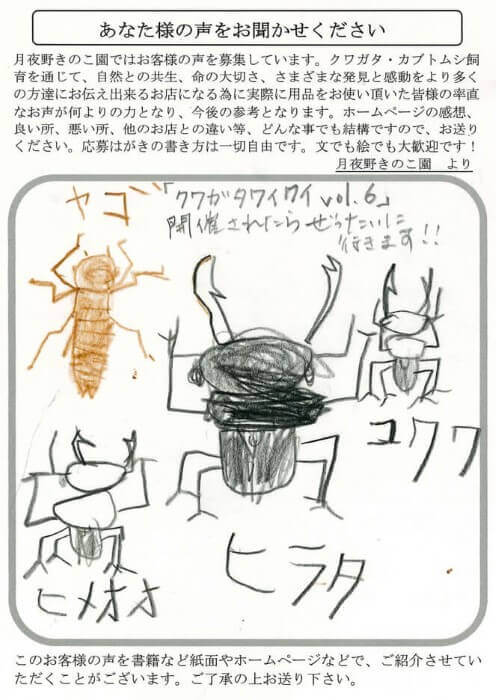 あなた様の声をお聞かせください
月夜野きのこ園ではお客様の声を募集しています。クワガタ・カブトムシ飼
育を通じて、自然との共生、命の大切さ、さまざまな発見と感動をより多く
の方達にお伝え出来るお店になる為に実際に用品をお使い頂いた皆様の率直
なお声が何よりの力となり、今後の参考となります。ホームページの感想、
良い所、悪い所、他のお店との違い等、どんな事でも結構ですので、お送り
ください。応募はがきの書き方は一切自由です。文でも絵でも大歓迎です！
月夜野きのこ園 より
ヤゴ
「クワガタワイワイ vol.6」
開催されたら ぜったいに
行きます!!
コクワ
ヒラタ
ヒメオオ
このお客様の声を書籍など紙面やホームページなどで、ご紹介させてい
ただくことがございます。ご了承の上お送り下さい。